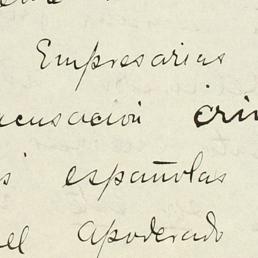 Empresarias
acusación cri
s españolas
el apoderado